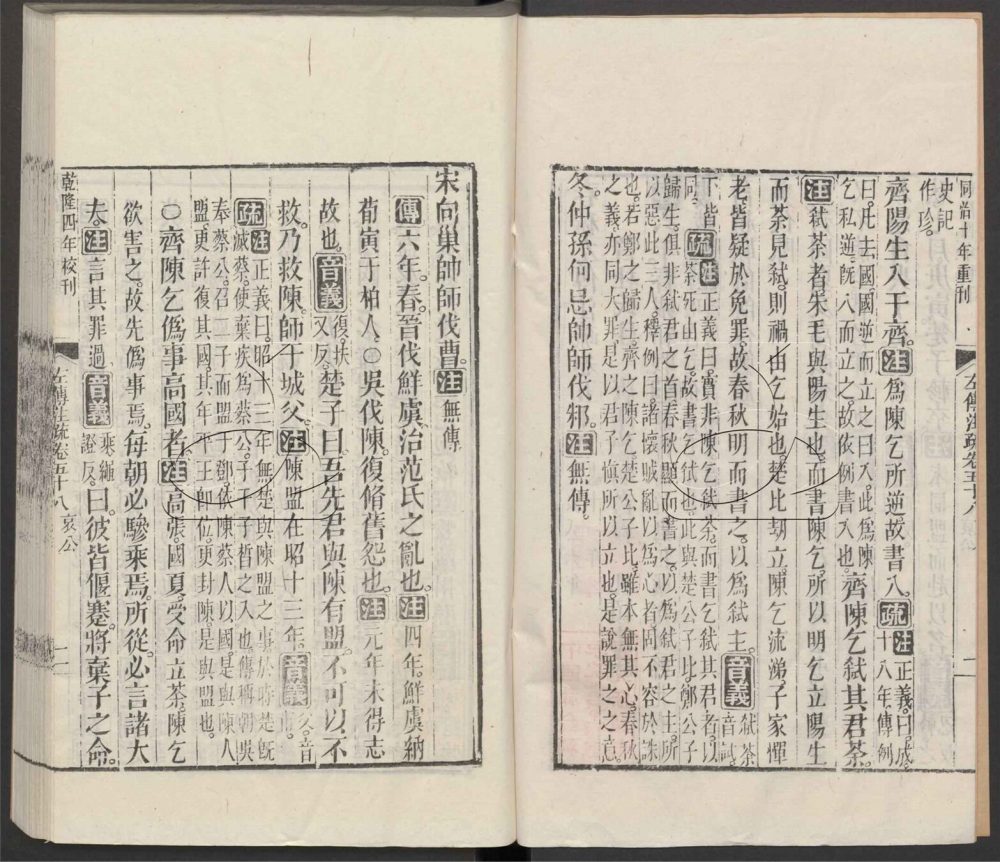 同治十年重刊
左傳注疏卷五十八
史記
作珍。
齊陽生入于齊。注爲陳乞所逆故書入。疏注正義曰。成
十八年傳例
曰。凡去國國逆而立之曰入。此爲陳
乞私逆。旣入而立之。故依例書入也。齊陳乞弒其君荼。
注弒荼者朱毛與陽生也。而書陳乞。所以明乞立陽生
而荼見弒。則禍由乞始也。楚比劫立。陳乞流涕。子家憚
老。皆疑於免罪。故春秋明而書之。以爲弒主。音義弒荼
音試。
下皆
同。疏注正義曰。實非陳乞弒荼。而書乞弒其君者。以
荼死由乞。故書乞弒也。此與楚公子比。鄭公子
歸生。俱非弒君之首。春秋顯而書之。以爲弒君之主。所
以惡此三人。釋例曰。諸懷賊亂以爲心者。固不容於誅
也。若鄭之歸生。齊之陳乞。楚公子比。雖本無其心。春秋
之義。亦同大罪。是以君子愼所以立也。是說罪之之意。
冬。仲孫何忌帥師伐邾。注無傳。
宋向巢帥師伐曹。注無傳
傳六年。春。晉伐鮮虞。治范氏之亂也。注四年。鮮虞納
荀寅于柏人。○吳伐陳。復脩舊怨也。注元年未得志
故也。音義復。扶
又反。楚子曰。吾先君與陳有盟。不可以不
救。乃救陳。師于城父。注陳盟在昭十三年。音義父。音
甫。
疏注正義曰。昭十三年無楚與陳盟之事。於時楚旣
滅蔡。使棄疾爲蔡公。子干子皙之入也。傳稱朝吳
奉蔡公。召二子而盟于鄧。依陳蔡人以國。是與陳人
盟。更許復其國。其年平王卽位。更封陳。是與盟也。
○齊陳乞僞事高國者。注高張。國夏。受命立荼。陳乞
欲害之。故先僞事焉。每朝必驂乘焉。所從。必言諸大
夫。注言其罪過音義乘。繩
證反。曰。彼皆偃蹇。將棄子之命。
乾隆四年校刊
左傳注疏卷五十八 哀公
二